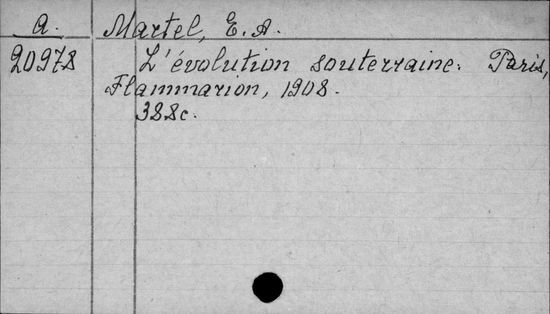 A. Martel, E. A.
20978 L'évolution souterraine. Paris,
Flammarion, 1908.
388c.